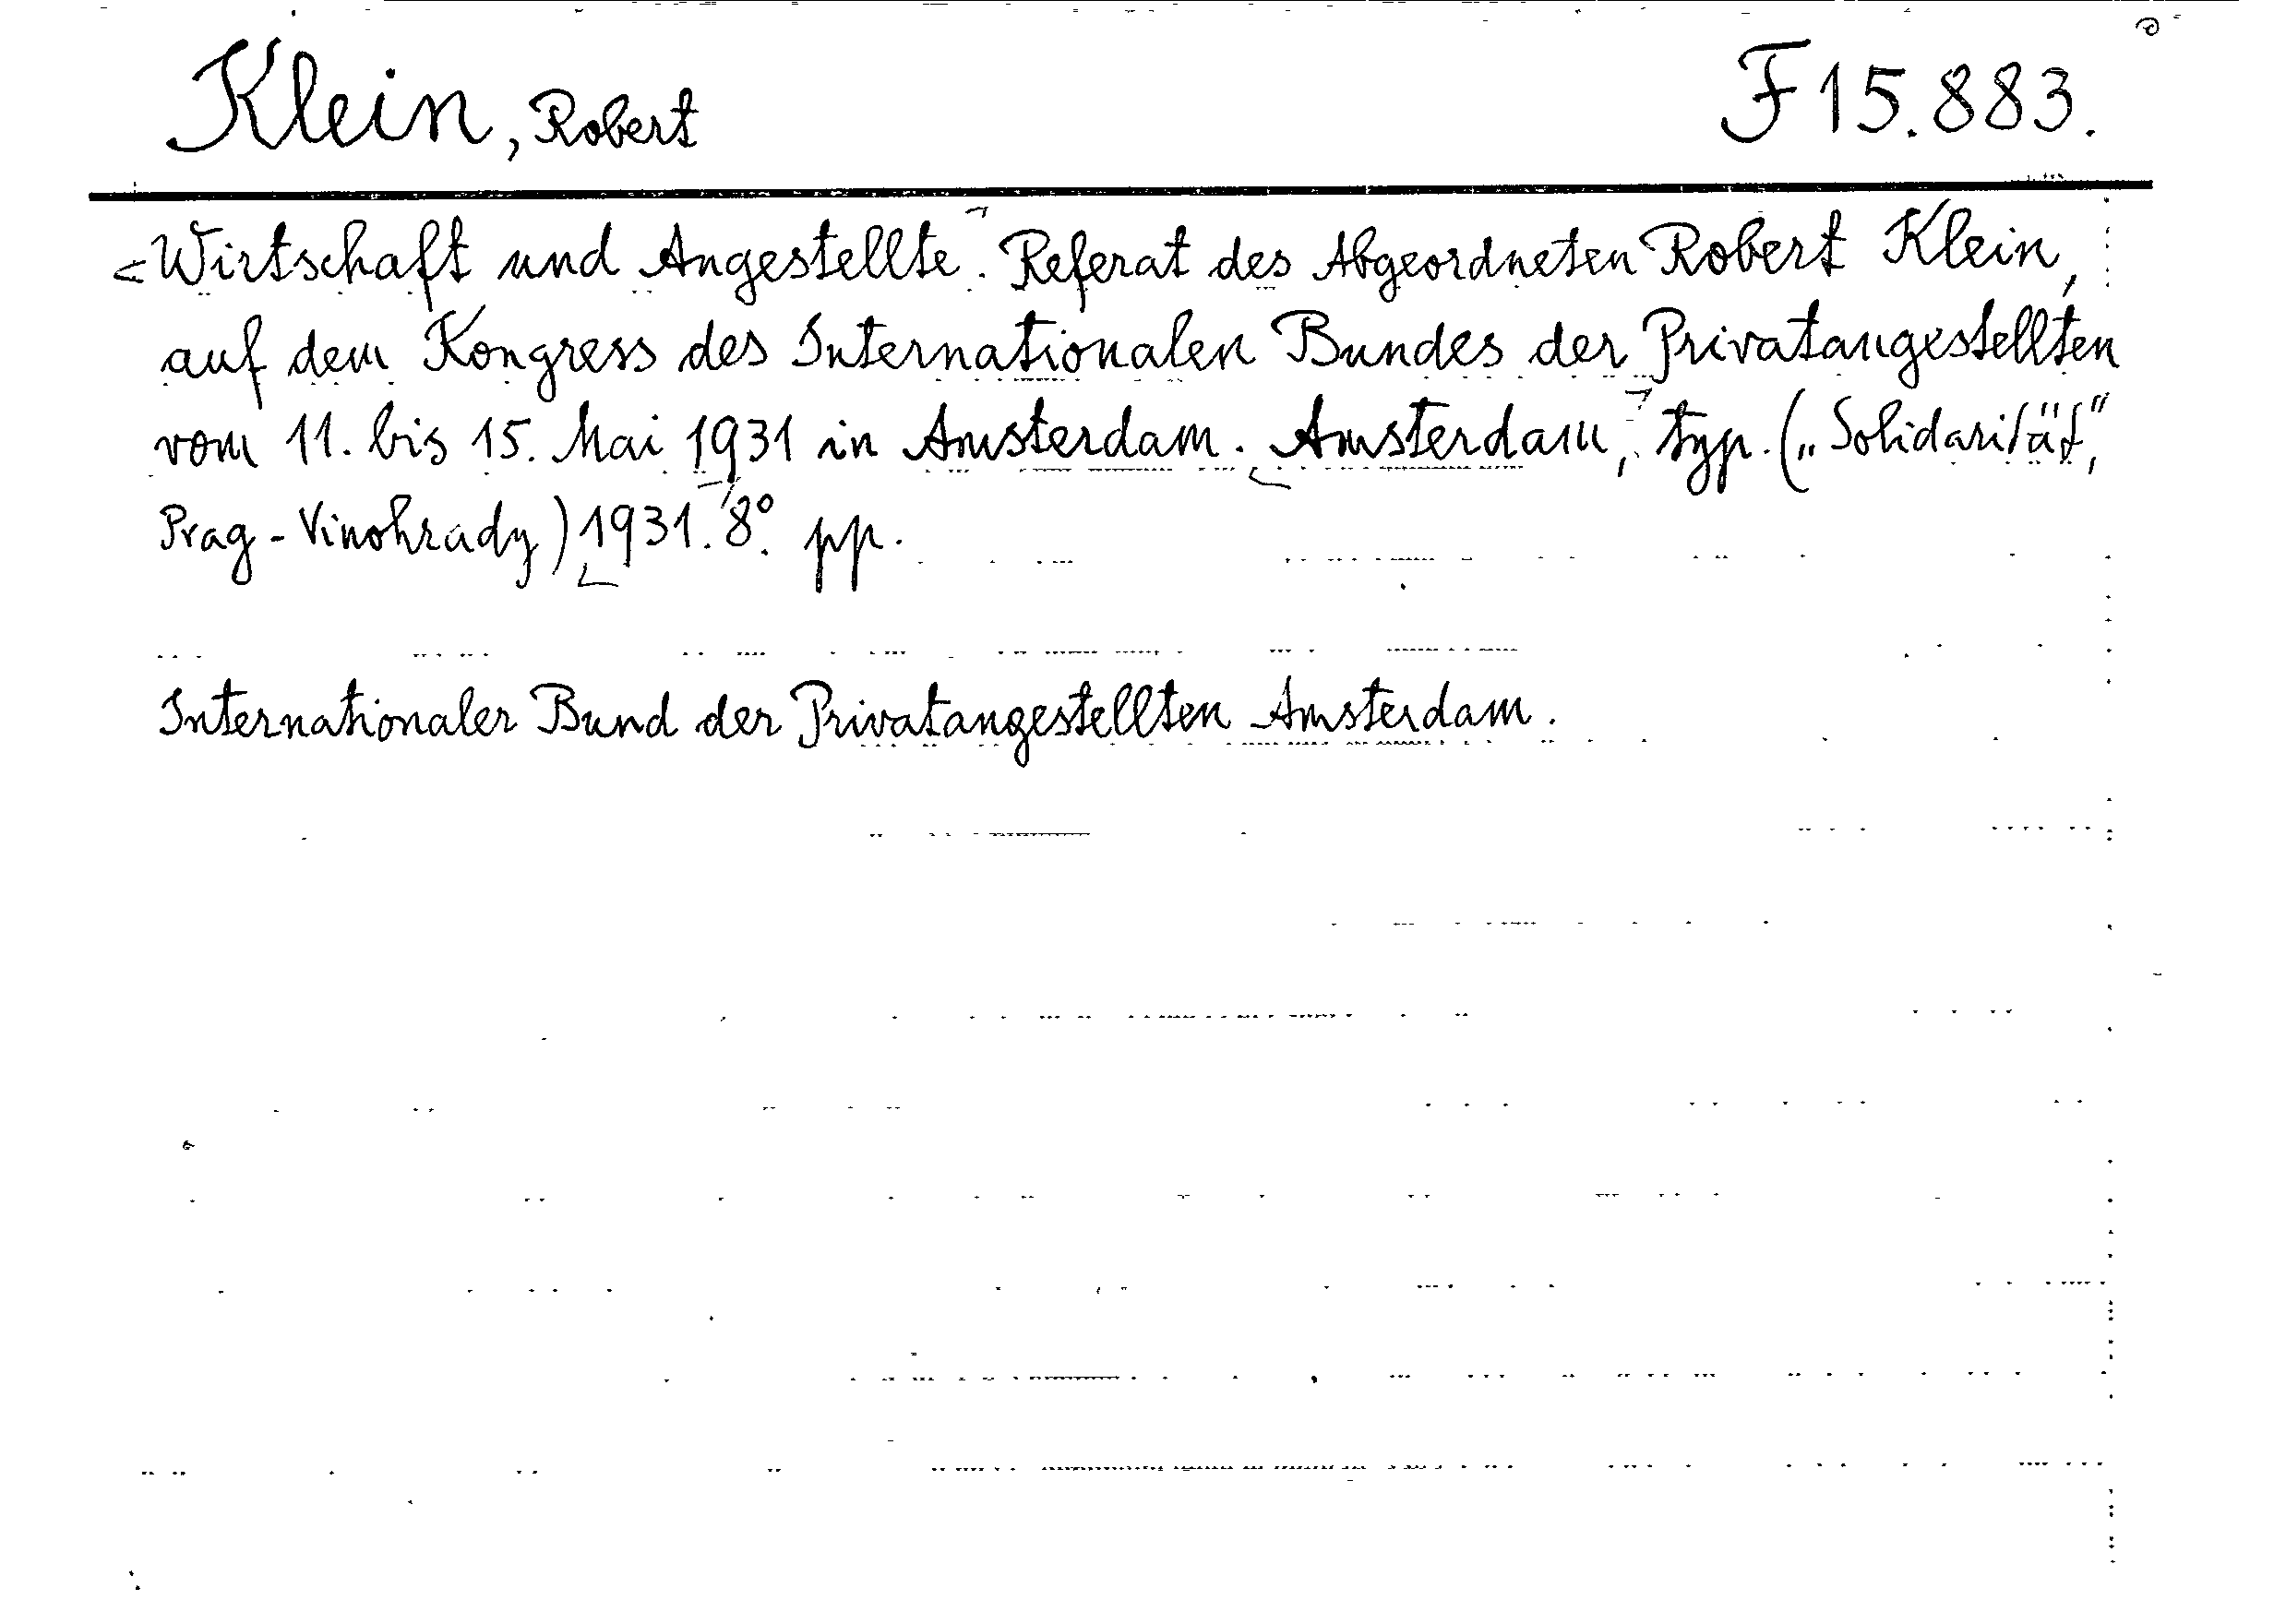 Klein, Robert F 15.883.
Wirtschaft und Angestellte. Referat des Abgeordneten Robert Klein,
auf dem Kongress des Internationalen Bundes der Privatangestellten
vom 11. bis 15. Mai 1931 in Amsterdam. Amsterdam, typ. („Solidarität",
Prag-Vinohrady) 1931. 8°. pp.
Internationaler Bund der Privatangestellten Amsterdam.